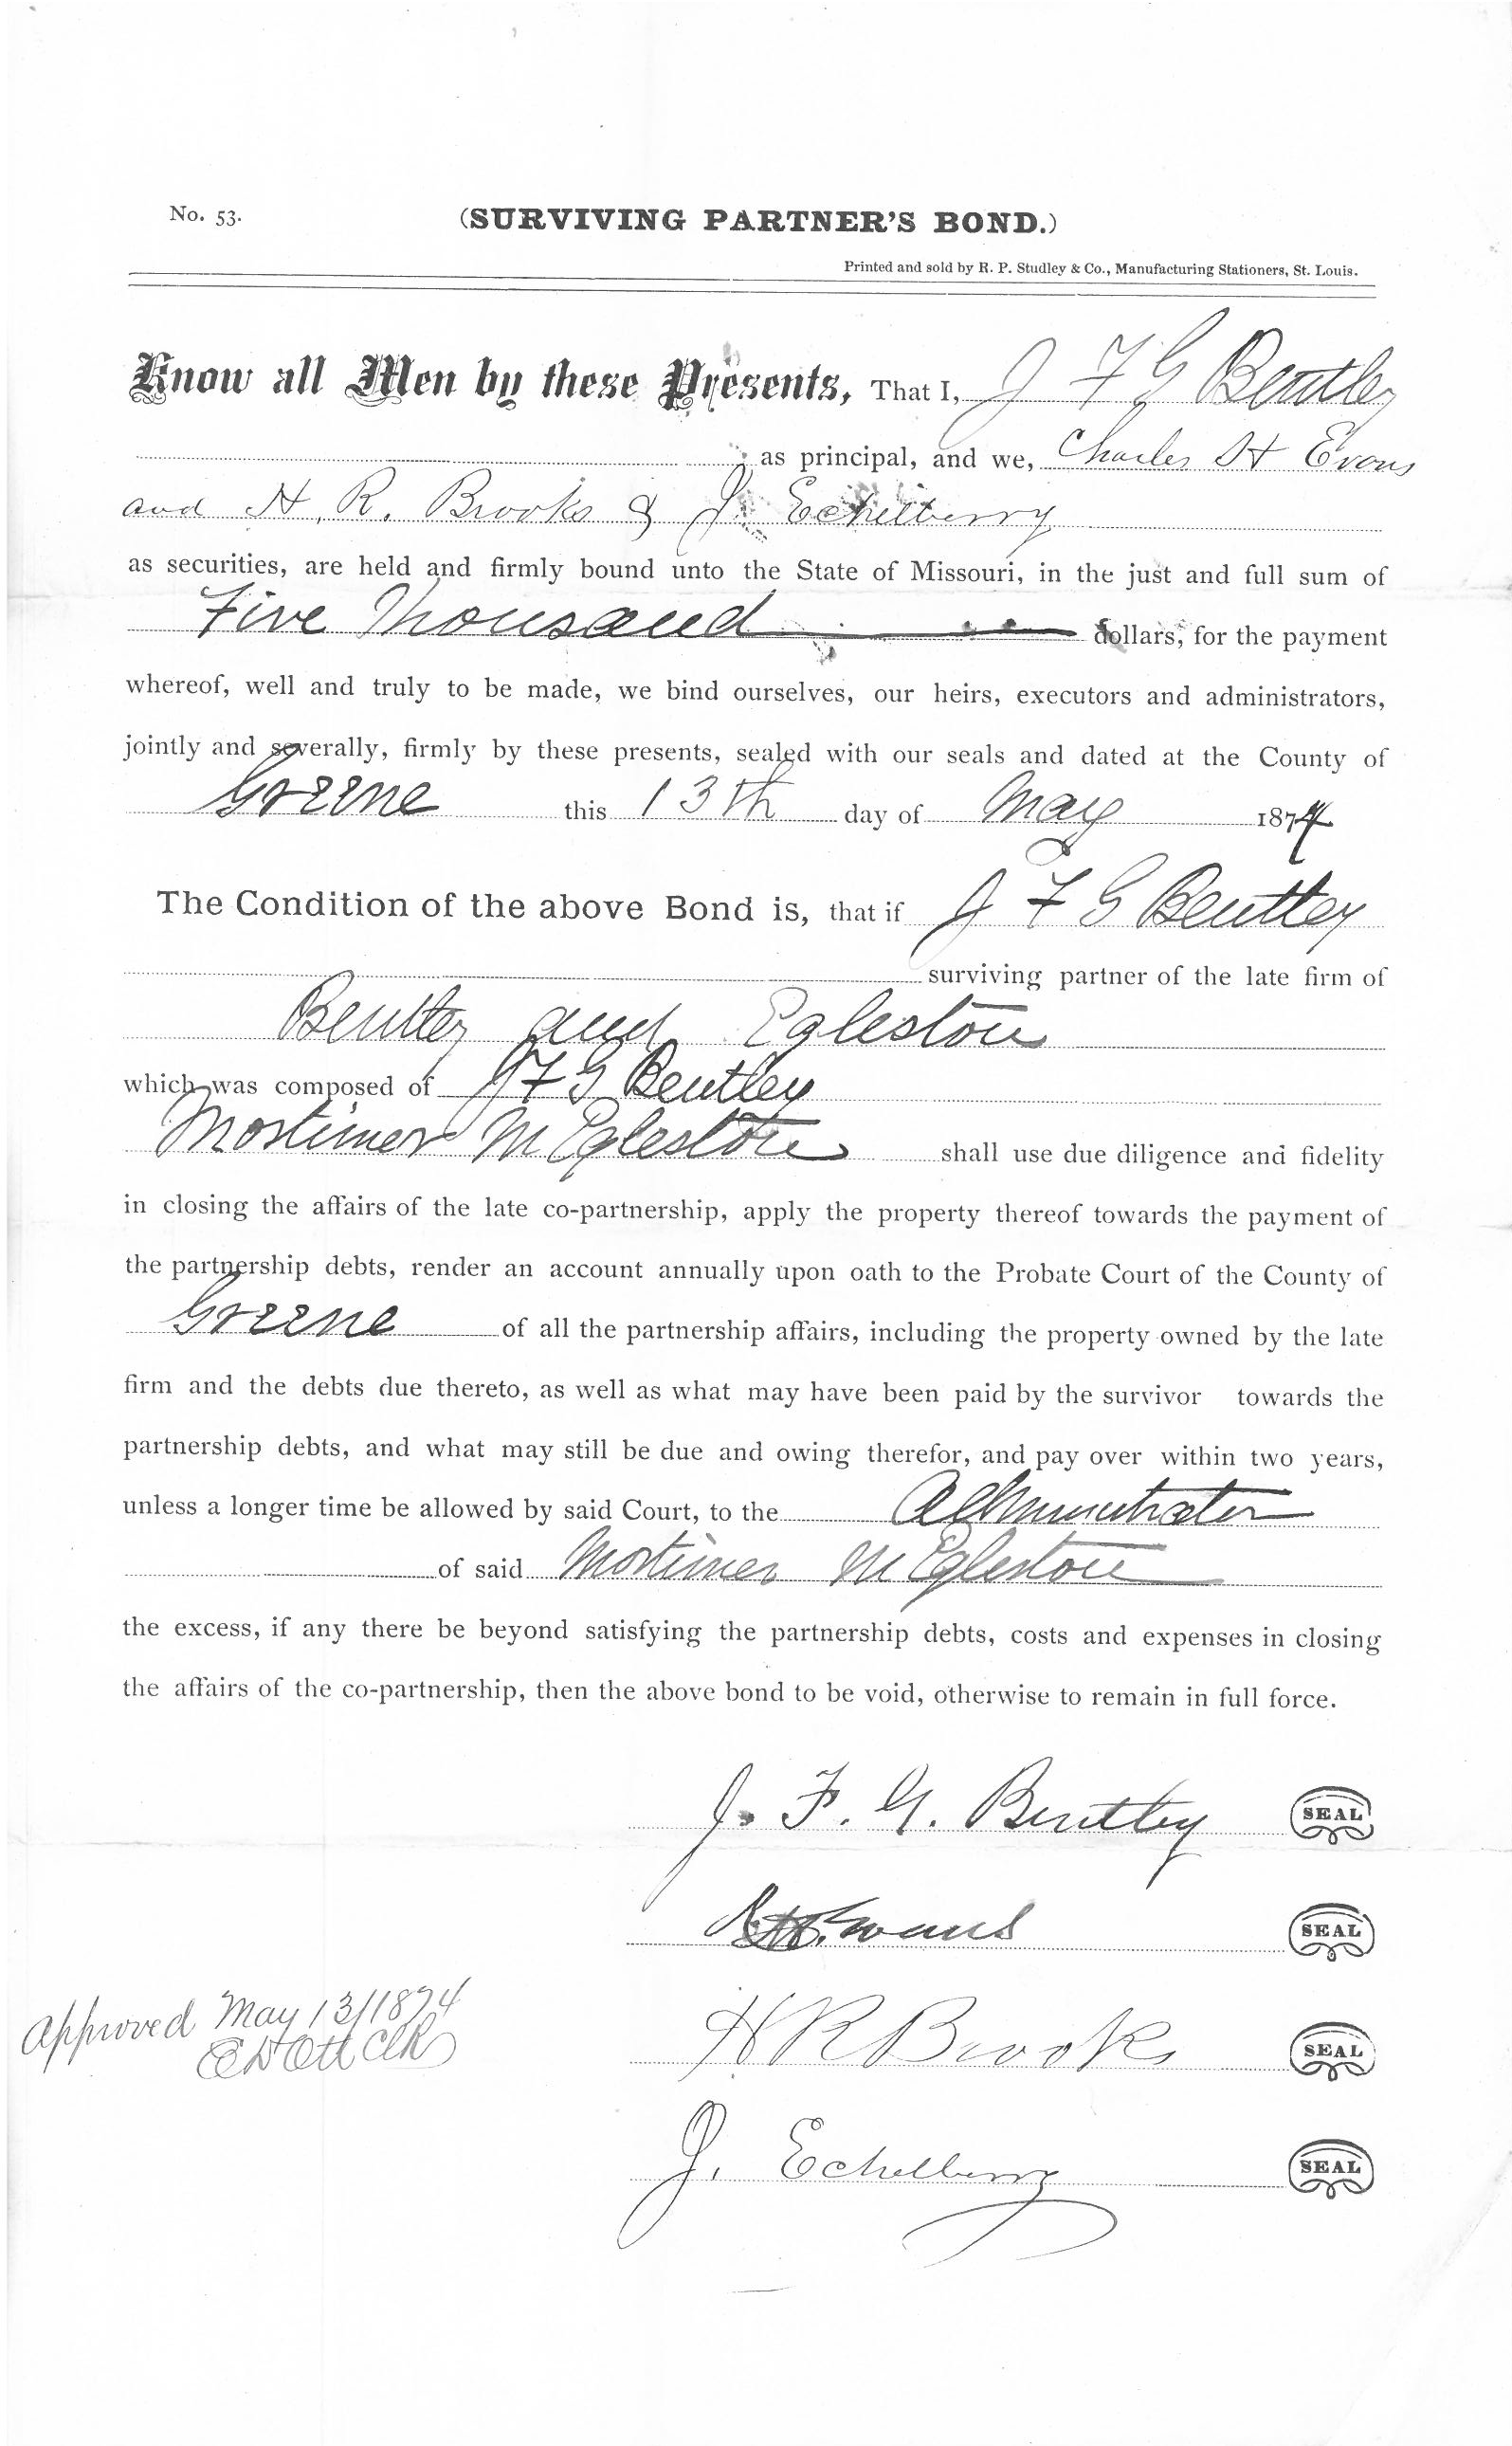 No. 53.
(SURVIVING PARTNER'S BOND.)
Printed and sold by R. P. Studley & Co., Manufacturing Stationers, St. Louis.
Know all Men by these Presents, That I, J F G Bentley
as principal, and we, Charles H Evans
and H. R. Brooks & J. Echelberry
as securities, are held and firmly bound unto the State of Missouri, in the just and full sum of
Five Thousand dollars, for the payment
whereof, well and truly to be made, we bind ourselves, our heirs, executors and administrators,
jointly and severally, firmly by these presents, sealed with our seals and dated at the County of
Greene this 13th day of May 1874
The Condition of the above Bond is, that if J F G Bentley
surviving partner of the late firm of
Bentley and Egleston
which was composed of J F G Bentley
Mortimer M Egleston shall use due diligence and fidelity
in closing the affairs of the late co-partnership, apply the property thereof towards the payment of
the partnership debts, render an account annually upon oath to the Probate Court of the County of
Greene of all the partnership affairs, including the property owned by the late
firm and the debts due thereto, as well as what may have been paid by the survivor towards the
partnership debts, and what may still be due and owing therefor, and pay over within two years,
unless a longer time be allowed by said Court, to the Administrator
of said Mortimer M Egleston
the excess, if any there be beyond satisfying the partnership debts, costs and expenses in closing
the affairs of the co-partnership, then the above bond to be void, otherwise to remain in full force.
J. F. G. Bentley SEAL
H. Evans SEAL
Approved May 13/1874
E D Ott Clk
H R Brooks SEAL
J. Echelberry SEAL